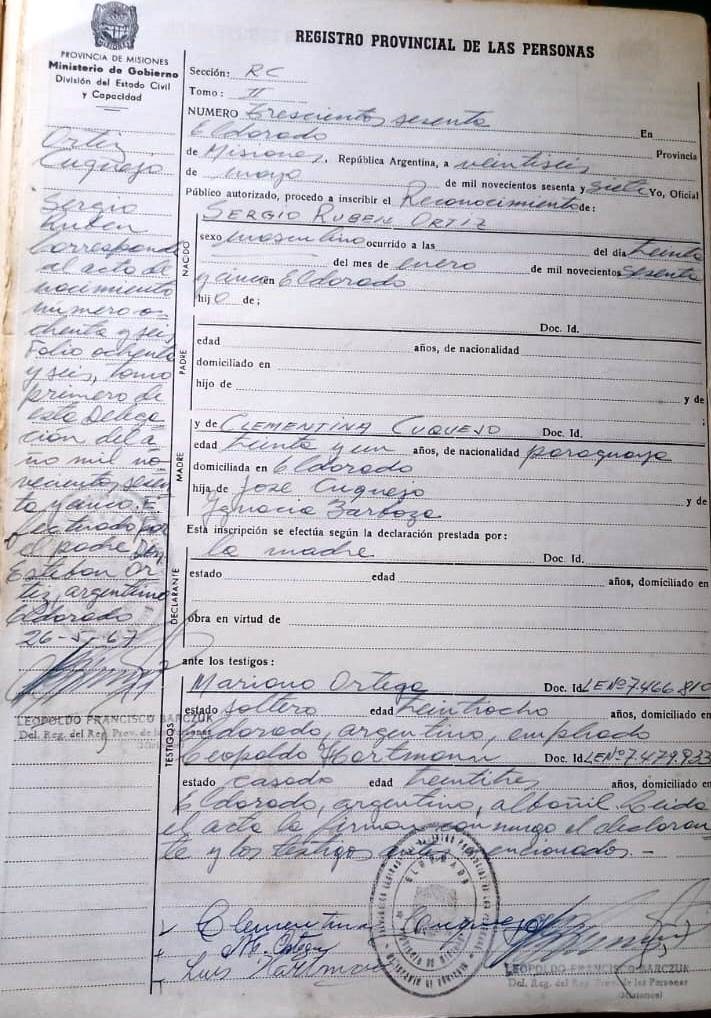 PROVINCIA DE MISIONES
Ministerio de Gobierno
División del Estado Civil
y Capacidad
Ortiz
Cuquejo
Sergio
Ruben
Corresponde
al acto de
nacimiento
número o-
chenta y seis
Folio ochenta
y seis, tomo
primero de
esta Delega-
ción del a-
ño mil no-
vecientos sesen-
ta y cinco. E-
fectuado por
el padre Don
Esteban Or-
tiz, argentino
Eldorado
26-5-67
LEOPOLDO FRANCISCO BARCZUK
Del. Reg. del Reg. Prov. de las Personas
(Misiones)
REGISTRO PROVINCIAL DE LAS PERSONAS
Sección: RC
Tomo: II
NUMERO Trescientos sesenta
Eldorado En
de Misiones, República Argentina, a veintiseis Provincia
de mayo de mil novecientos sesenta y siete Yo, Oficial
Público autorizado, procedo a inscribir el Reconocimiento de:
NACIDO
SERGIO RUBEN ORTIZ
sexo masculino ocurrido a las del día treinta
del mes de enero de mil novecientos sesenta
y cinco en Eldorado
hijo de;
PADRE
Doc. Id.
edad años, de nacionalidad
domiciliado en
hijo de y de
;
MADRE
y de CLEMENTINA CUQUEJO Doc. Id.
edad treinta y un años, de nacionalidad paraguaya
domiciliada en Eldorado
hija de José Cuquejo y de
Ignacia Barboza
Esta inscripción se efectúa según la declaración prestada por:
DECLARANTE
la madre Doc. Id.
estado edad años, domiciliado en
obra en virtud de
ante los testigos:
TESTIGOS
Mariano Ortega Doc. Id. LE Nº 7.466.810
estado soltero edad treintiocho años, domiciliado en
Eldorado, argentino, empleado
Leopoldo Hartmann Doc. Id. LE Nº 7.479.933
estado casado edad treintitres años, domiciliado en
Eldorado, argentino, albañil. Leida
el acta la firman conmigo el declaran-
te y los testigos antes mencionados.-
Clementina Cuquejo
M. Ortega
Luis Hartmann
ELDORADO
LEOPOLDO FRANCISCO BARCZUK
Del. Reg. del Reg. Prov. de las Personas
(Misiones)